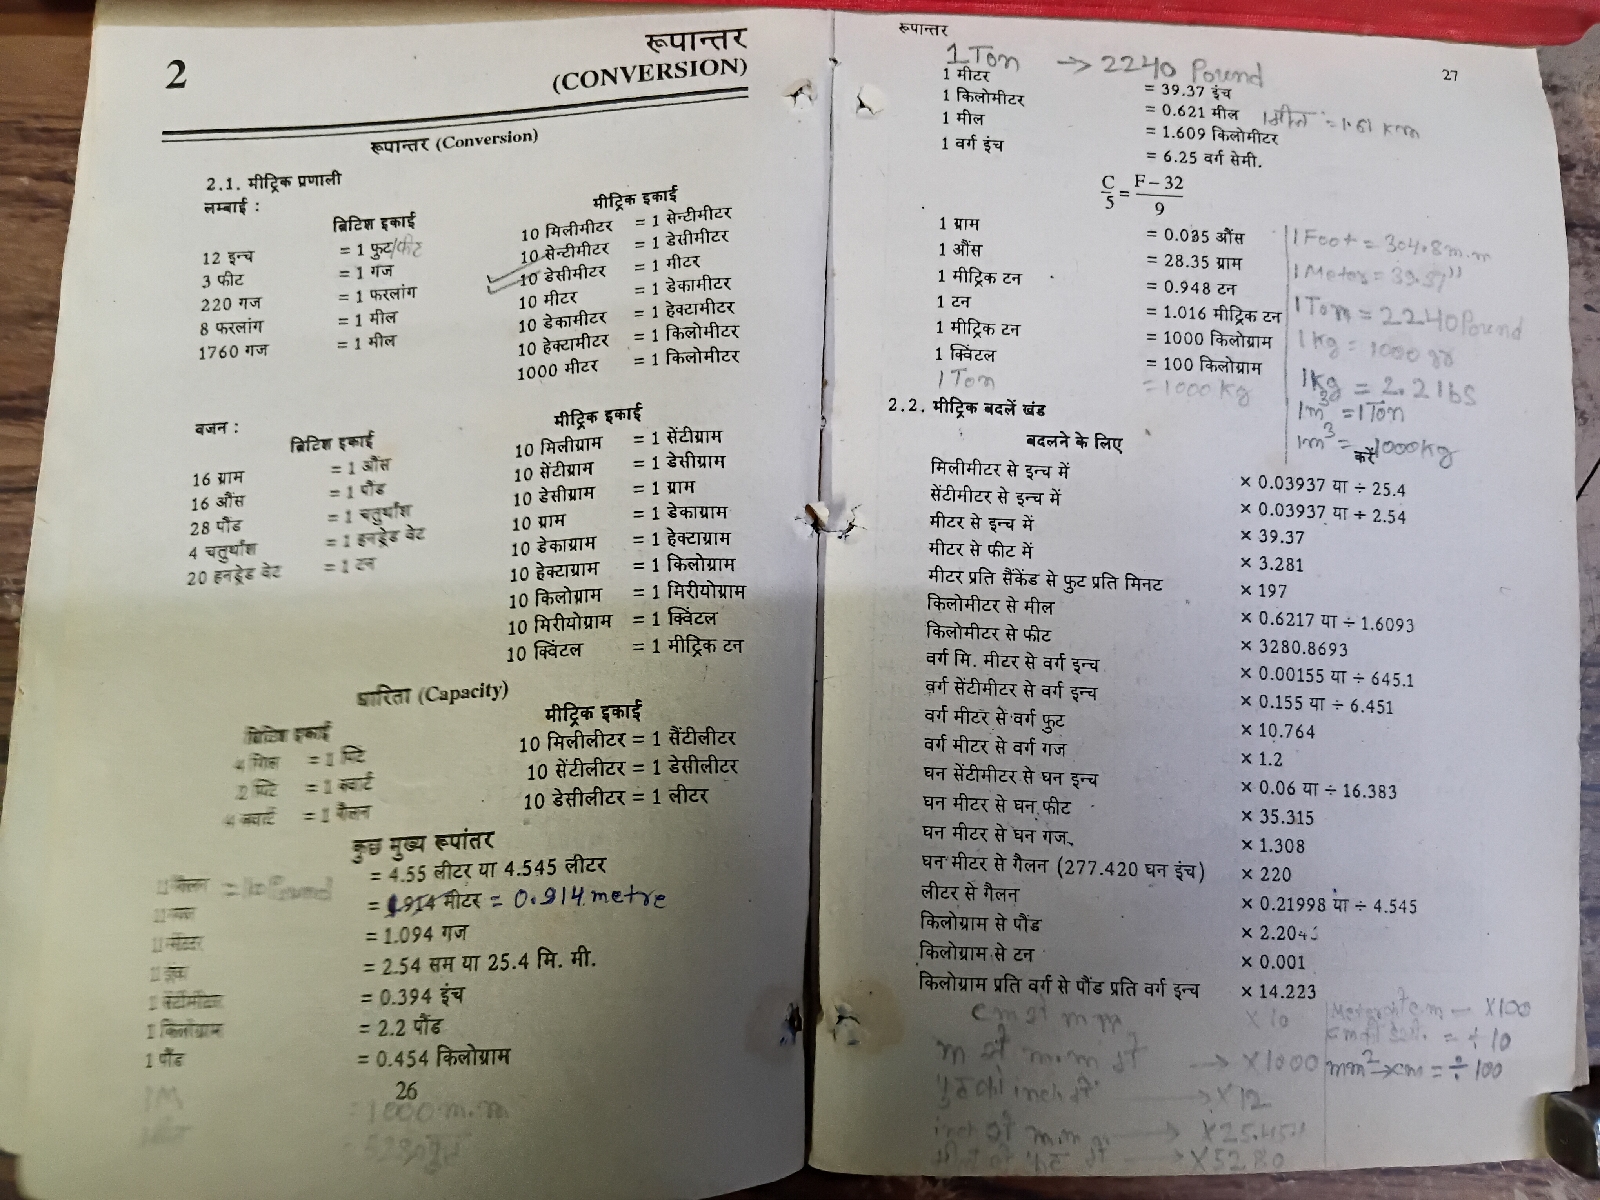 2
रूपान्तर
(CONVERSION)
रूपान्तर (Conversion)
2.1. मीट्रिक प्रणाली
लम्बाई :
ब्रिटिश इकाई
12 इन्च = 1 फुट/फीट
3 फीट = 1 गज
220 गज = 1 फरलांग
8 फरलांग = 1 मील
1760 गज = 1 मील
मीट्रिक इकाई
10 मिलीमीटर = 1 सेन्टीमीटर
10 सेन्टीमीटर = 1 डेसीमीटर
10 डेसीमीटर = 1 मीटर
10 मीटर = 1 डेकामीटर
10 डेकामीटर = 1 हेक्टामीटर
10 हेक्टामीटर = 1 किलोमीटर
1000 मीटर = 1 किलोमीटर
वजन :
ब्रिटिश इकाई
16 ग्राम = 1 औंस
16 औंस = 1 पौंड
28 पौंड = 1 चतुर्थांश
4 चतुर्थांश = 1 हनड्रेड वेट
20 हनड्रेड वेट = 1 टन
मीट्रिक इकाई
10 मिलीग्राम = 1 सेंटीग्राम
10 सेंटीग्राम = 1 डेसीग्राम
10 डेसीग्राम = 1 ग्राम
10 ग्राम = 1 डेकाग्राम
10 डेकाग्राम = 1 हेक्टाग्राम
10 हेक्टाग्राम = 1 किलोग्राम
10 किलोग्राम = 1 मिरीयोग्राम
10 मिरीयोग्राम = 1 क्विंटल
10 क्विंटल = 1 मीट्रिक टन
धारिता (Capacity)
ब्रिटिश इकाई
4 गिल = 1 पिंट
2 पिंट = 1 क्वार्ट
4 क्वार्ट = 1 गैलन
मीट्रिक इकाई
10 मिलीलीटर = 1 सेंटीलीटर
10 सेंटीलीटर = 1 डेसीलीटर
10 डेसीलीटर = 1 लीटर
कुछ मुख्य रूपांतर
1 गैलन = 10 Pound = 4.55 लीटर या 4.545 लीटर
= 1.914 मीटर = 0.914 metre
= 1.094 गज
= 2.54 सम या 25.4 मि. मी.
1 सेंटीमीटर = 0.394 इंच
1 किलोग्राम = 2.2 पौंड
1 पौंड = 0.454 किलोग्राम
26
1M = 1000 m.m
रूपान्तर
27
1 Ton → 2240 Pound
1 मीटर = 39.37 इंच
1 किलोमीटर = 0.621 मील 1 मील = 1.61 km
1 मील = 1.609 किलोमीटर
1 वर्ग इंच = 6.25 वर्ग सेमी.
C/5 = F – 32/9
1 ग्राम = 0.035 औंस
1 औंस = 28.35 ग्राम
1 मीट्रिक टन = 0.948 टन
1 टन = 1.016 मीट्रिक टन
1 मीट्रिक टन = 1000 किलोग्राम
1 क्विंटल = 100 किलोग्राम
1 Ton = 1000 Kg
1 Foot = 304.8 m.m
1 Meter = 39.37"
1 Ton = 2240 Pound
1 kg = 1000 gr
1 kg = 2.2 lbs
1m³ = 1 Ton
1m³ = 1000 kg
2.2. मीट्रिक बदलें खंड
बदलने के लिए करें
मिलीमीटर से इन्च में × 0.03937 या ÷ 25.4
सेंटीमीटर से इन्च में × 0.03937 या ÷ 2.54
मीटर से इन्च में × 39.37
मीटर से फीट में × 3.281
मीटर प्रति सैंकेंड से फुट प्रति मिनट × 197
किलोमीटर से मील × 0.6217 या ÷ 1.6093
किलोमीटर से फीट × 3280.8693
वर्ग मि. मीटर से वर्ग इन्च × 0.00155 या ÷ 645.1
वर्ग सेंटीमीटर से वर्ग इन्च × 0.155 या ÷ 6.451
वर्ग मीटर से वर्ग फुट × 10.764
वर्ग मीटर से वर्ग गज × 1.2
घन सेंटीमीटर से घन इन्च × 0.06 या ÷ 16.383
घन मीटर से घन फीट × 35.315
घन मीटर से घन गज × 1.308
घन मीटर से गैलन (277.420 घन इंच) × 220
लीटर से गैलन × 0.21998 या ÷ 4.545
किलोग्राम से पौंड × 2.204
किलोग्राम से टन × 0.001
किलोग्राम प्रति वर्ग से पौंड प्रति वर्ग इन्च × 14.223
cm से mm × 10
m से m.m में → × 1000
फुट को inch में → × 12
inch से m.m →
मील से फुट में → × 5280
× 100
÷ 10
mm² → cm = ÷ 100